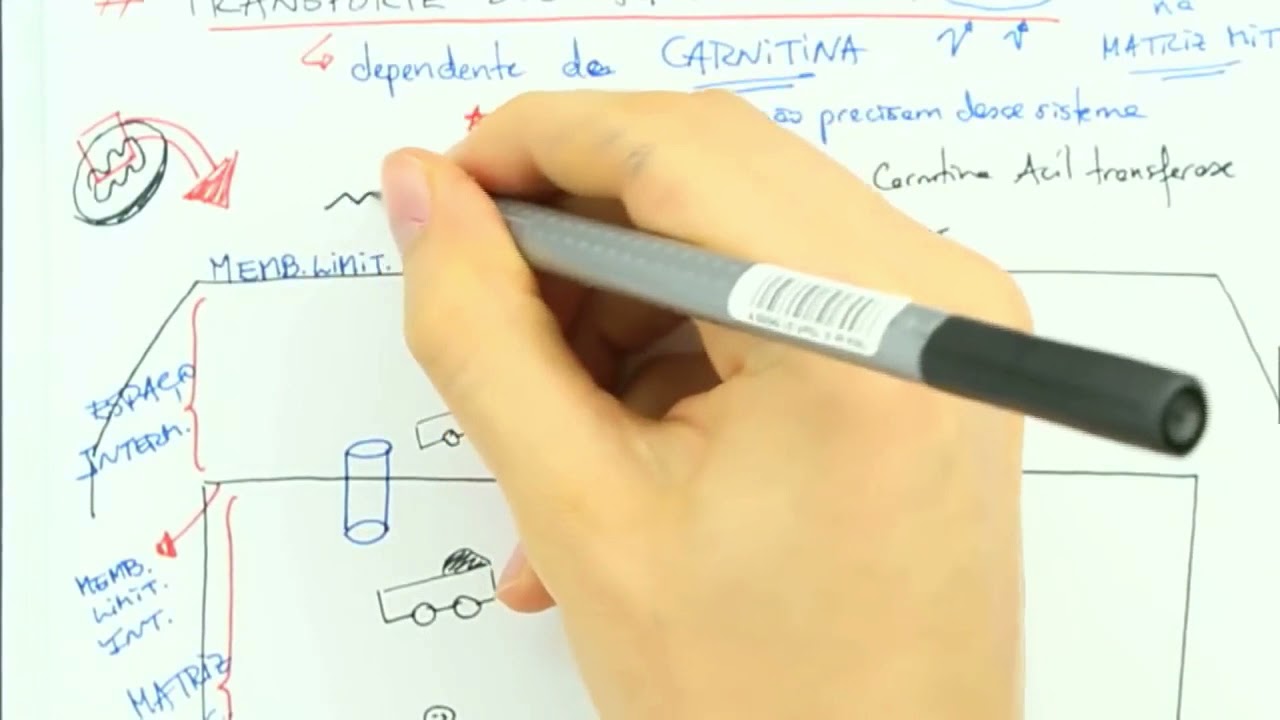 # TRANSPORTE
na
↳ dependente de CARNITINA
MATRIZ MIT
precisam desse sistema
Carnitina Acil transferase
MEMB. LIMIT.
ESPAÇO
INTERM.
MEMB.
LIMIT.
INT.
MATRIZ